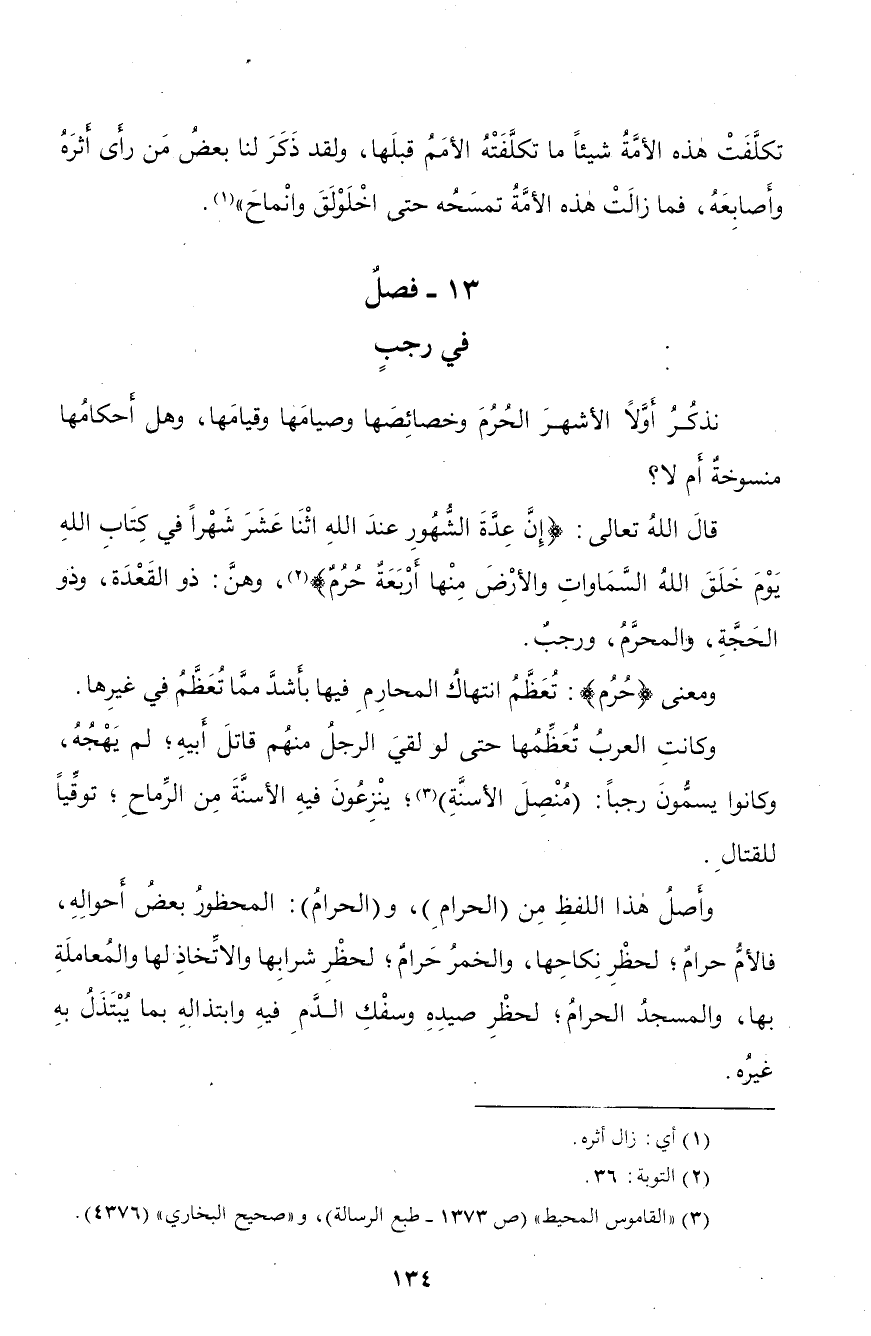 تكلَّفَتْ هٰذه الأمَّةُ شيئاً ما تكلَّفَتْهُ الأمَمُ قبلَها، ولقد ذَكَرَ لنا بعضُ مَن رأَى أَثرَهُ
وأَصابِعَهُ، فما زالَتْ هٰذه الأمَّةُ تمسَحُه حتى اخْلَوْلَقَ وانْماحَ»(١).
١٣ ـ فصلٌ
في رجبٍ
نذكُـرُ أَوَّلاً الأشهـرَ الحُرُمَ وخصائِصَها وصيامَها وقيامَها، وهل أَحكامُها
منسوخةٌ أَم لا؟
قالَ اللهُ تعالى: ﴿إِنَّ عِدَّةَ الشُّهُورِ عندَ اللهِ اثْنَا عَشَرَ شَهْراً في كِتَابِ اللهِ
يَوْمَ خَلَقَ اللهُ السَّمَاواتِ والأرْضَ مِنْها أَرْبَعَةٌ حُرُمٌ﴾(٢)، وهنَّ: ذو القَعْدَة، وذو
الحَجَّةِ، والمحرَّمُ، ورجبٌ.
ومعنى ﴿حُرُم﴾: تُعَظَّمُ انتهاكُ المحارِمِ فيها بأَشدَّ ممَّا تُعَظَّمُ في غيرِها.
وكانتِ العربُ تُعَظِّمُها حتى لو لقيَ الرجلُ منهُم قاتلَ أَبيهِ؛ لم يَهْجُهُ،
وكانوا يسمُّونَ رجباً: (مُنْصِلَ الأسنَّةِ)(٣)؛ ينْزِعُونَ فيهِ الأسنَّةَ مِن الرِّماحِ؛ توقِّياً
للقتالِ.
وأَصلُ هٰذا اللفظِ مِن (الحرامِ)، و(الحرامُ): المحظورُ بعضُ أَحوالِهِ،
فالأمُّ حرامٌ؛ لحظْرِ نِكاحِها، والخمرُ حَرامٌ؛ لحظْرِ شرابِها والاتِّخاذِ لها والمُعاملَةِ
بها، والمسجدُ الحرامُ؛ لحظْرِ صيدِهِ وسفْكِ الـدَّمِ فيهِ وابتذالهِ بما يُبْتَذَلُ بهِ
غيرُه.
(١) أي: زال أثره.
(٢) التوبة: ٣٦.
(٣) «القاموس المحيط» (ص ١٣٧٣ ـ طبع الرسالة)، و«صحيح البخاري» (٤٣٧٦).
١٣٤